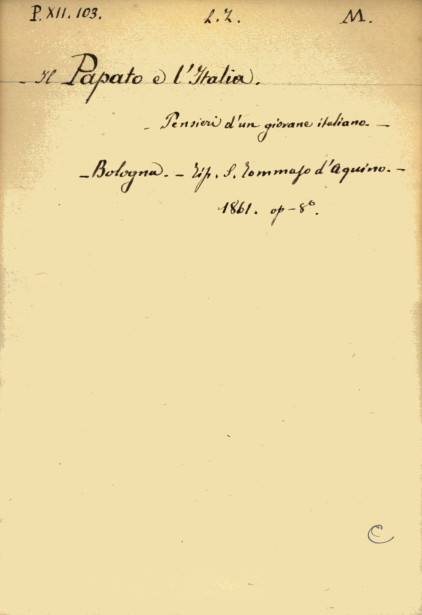 P. XII. 103. L. Z. M.
Il Papato e l'Italia.
- Pensieri d'un giovane italiano. -
- Bologna. - Tip. S. Tommaso d'Aquino. -
1861. op - 8º.
C